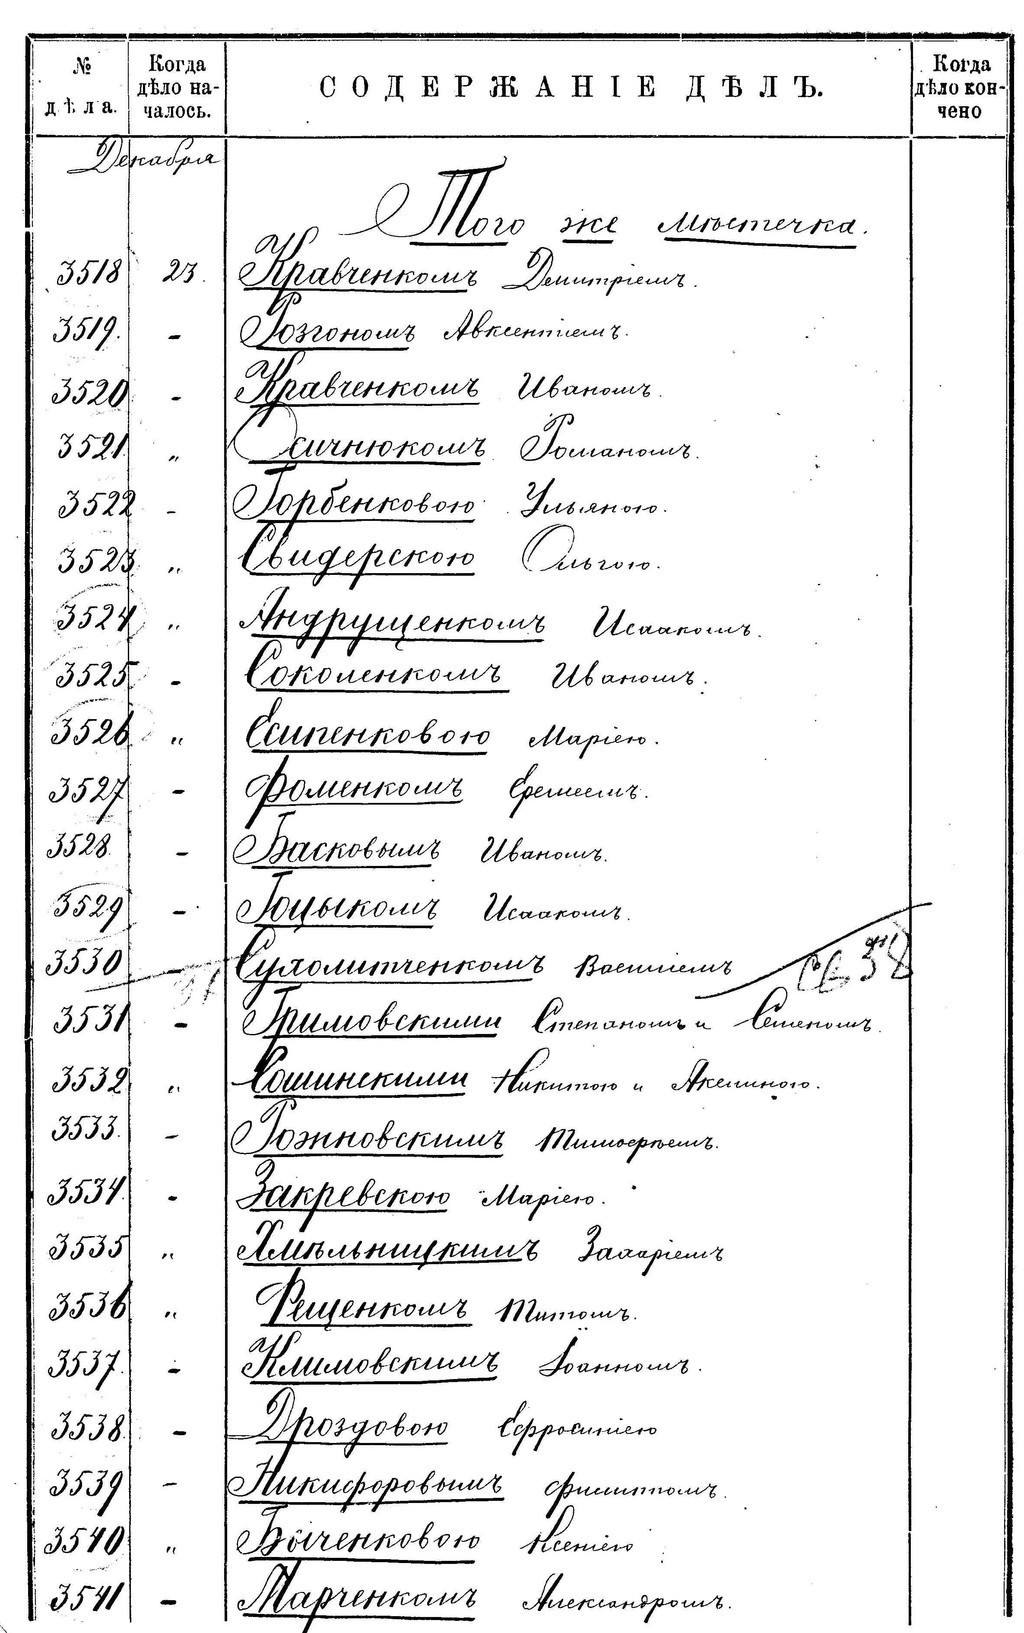 № дѣла.
Когда дѣло началось.
СОДЕРЖАНІЕ ДѢЛЪ.
Когда дѣло кончено
Декабря
Того же мѣстечка.
3518 23. Кравченкомъ Димитріемъ.
3519. - Розгономъ Авксентіемъ.
3520 - Кравченкомъ Иваномъ.
3521 „ Романомъ.
3522 - Горбенковою Ульяною.
3523 „ Свидерскою Ольгою.
3524 „ Андрущенкомъ Исаакомъ.
3525 - Соколенкомъ Иваномъ.
3526 „ Есипенковою Маріею.
3527 - Фоменкомъ Еремеемъ.
3528. - Басковымъ Иваномъ.
3529 - Гоцыкомъ Исаакомъ.
3530 - Сухолитченкомъ Васи­ліемъ св 38
3531 - Гримовскими Степаномъ и Семеномъ.
3532 „ Сошинскими Никитою и Акилиною.
3533. - Рожновскимъ Тимофѣемъ.
3534. - Закревскою Маріею.
3535 „ Хмѣльницкимъ Захаріемъ
3536 „ Рещенкомъ Титомъ.
3537. - Климовскимъ Іоанномъ.
3538. - Дроздовою Ефросиніею
3539 - Никифоровымъ Филиппомъ.
3540 „ Ксеніею
3541 - Марченкомъ Александромъ.